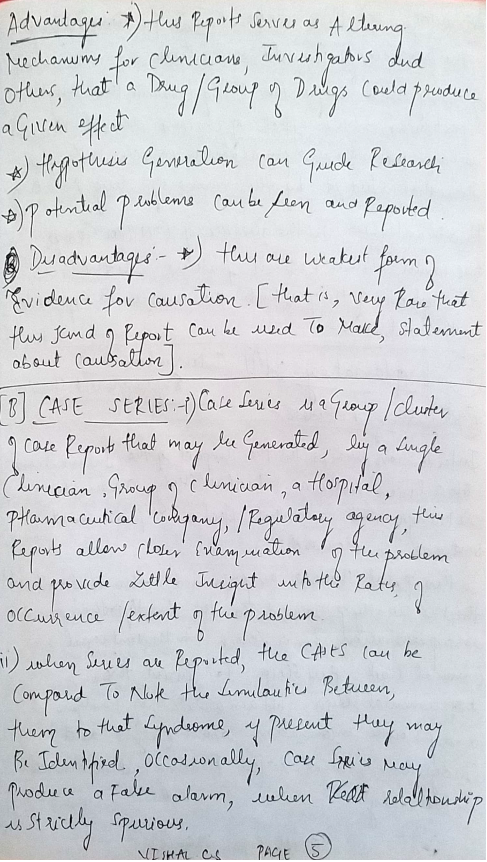 Advantages: *) this Reports Serves as Altering
Mechanisms for Clinicians, Investigators and
Others, that a Drug/Group of Drugs Could produce
a Given effect
*) Hypothesis Generation can Guide Research
*) Potential problems can be seen and Reported.
Disadvantages:- *) this are weakest form of
Evidence for Causation. [that is, very Rare that
this kind of Report Can be used To Make, statement
about Causation].
[B] CASE SERIES:- i) Case Series is a Group/cluster
of case Reports that may be Generated, by a single
Clinician, Group of clinician, a Hospital,
Pharmaceutical Company, /Regulatory agency, this
Reports allow closer Examination of the problem
and provide Little Insight into the Rates of
Occurrence /extent of the problem.
ii) when Series are Reported, the CASES can be
Compard To Note the Similarities Between,
them to that Syndrome, if present they may
Be Identified, Occasionally, Case Series May
Produce a False alarm, when relationship
is Strictly Spurious.
VISHAL PAGE 5